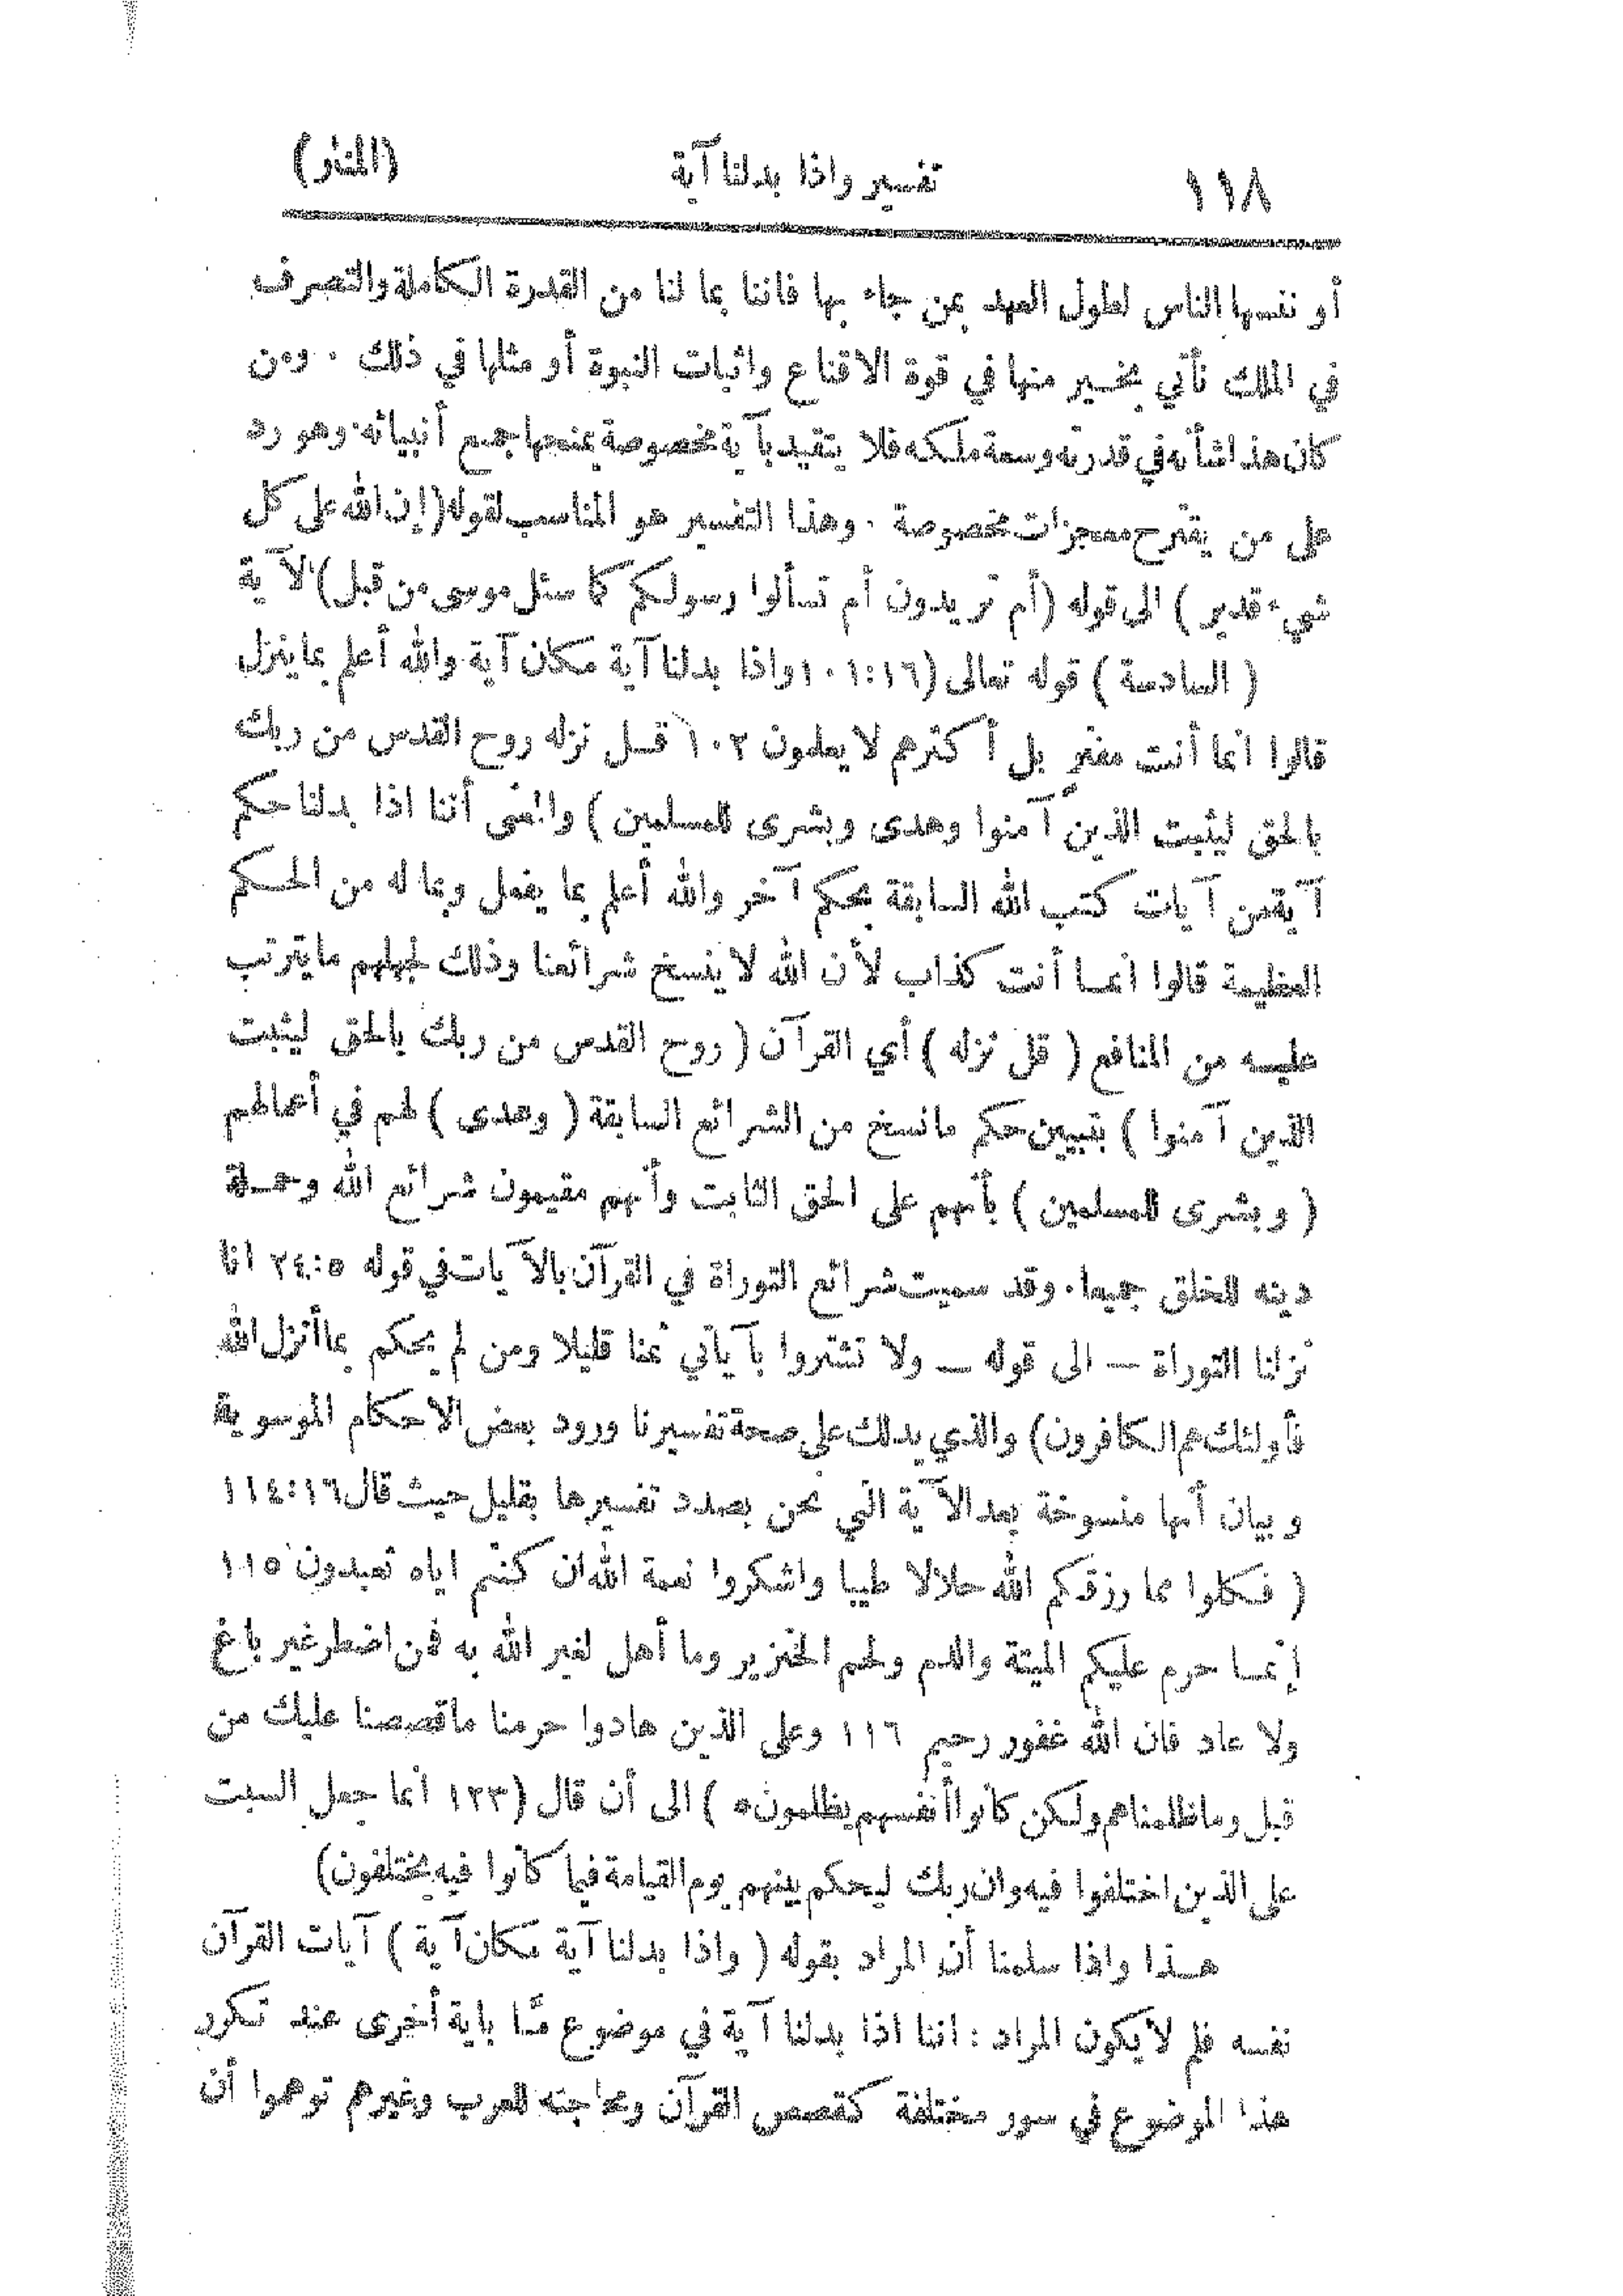 ١١٨ تفسير واذا بدلنا آية (المنار)
أو ننسها الناس لطول العهد بمن جاء بها فاننا بما لنا من القدرة الكاملة والتصرف
في الملك نأتي بخير منها في قوة الاقناع واثبات النبوة أو مثلها في ذلك . ومن
كان هذا شأنه في قدرته وسعة ملكه فلا يتقيد بآية مخصوصة يمنحها جميع أنبيائه. وهو رد
على من يقترح معجزات مخصوصة . وهذا التفسير هو المناسب لقوله (إن الله على كل
شيء قدير ) الى قوله (أم تريدون أم تسألوا رسولكم كما سئل موسى من قبل) الآية
( السادسة ) قوله تعالى (١٦:١٠١ واذا بدلنا آية مكان آية والله أعلم بما ينزل
قالوا انما أنت مفتر بل أكثرهم لا يعلمون ١٠٢ قـل نزله روح القدس من ربك
بالحق ليثبت الذين آمنوا وهدى وبشرى للمسلمين ) والمعنى أننا اذا بدلنا حكم
آية من آيات كتب الله السابقة بحكم آخر والله أعلم بما يفعل وبما له من الحكم
العظيمة قالوا انمـا أنت كذاب لأن الله لا ينسخ شرائعنا وذلك لجهلهم ما يترتب
عليه من المنافع ( قل نزله ) أي القرآن ( روح القدس من ربك بالحق ليثبت
الذين آمنوا ) بتبيين حكم ما نسخ من الشرائع السابقة ( وهدى ) لهم في أعمالهم
( وبشرى للمسلمين ) بأنهم على الحق الثابت وأنهم مقيمون شرائع الله وحملة
دينه للخلق جميعا. وقد سميت شرائع التوراة في القرآن بالآيات في قوله ٥:٢٤ انا
نزلنا التوراة — الى قوله — ولا تشتروا بآياتي ثمنا قليلا ومن لم يحكم بما أنزل الله
فأولئك هم الكافرون) والذي يدلك على صحة تفسيرنا ورود بعض الاحكام الموسوية
وبيان أنها منسوخة بعد الآية التي نحن بصدد تفسيرها بقليل حيث قال ١٦:١١٤
( فكلوا مما رزقكم الله حلالا طيبا واشكروا نعمة الله ان كنتم اياه تعبدون ١١٥
إنمـا حرم عليكم الميتة والدم ولحم الخنزير وما أهل لغير الله به فمن اضطر غير باغ
ولا عاد فان الله غفور رحيم ١١٦ وعلى الذين هادوا حرمنا ما قصصنا عليك من
قبل وما ظلمناهم ولكن كانوا أنفسهم يظلمون ) الى أن قال (١٢٣ انما جعل السبت
على الذين اختلفوا فيه وان ربك ليحكم بينهم يوم القيامة فيما كانوا فيه يختلفون)
هـذا واذا سلمنا أن المراد بقوله ( واذا بدلنا آية مكان آية ) آيات القرآن
نفسه فلم لا يكون المراد : اننا اذا بدلنا آية في موضوع مّا باية أخرى عند تكرر
هذا الموضوع في سور مختلفة كقصص القرآن ومحاجته للعرب وغيرهم توهموا أن